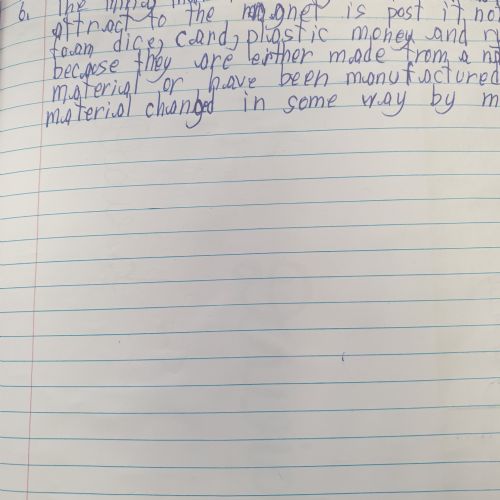 6. The
attract to the magnet is post it
foam dice, card, plastic money and
because they are either made from a
material or have been manufactured
material changed in some way by m